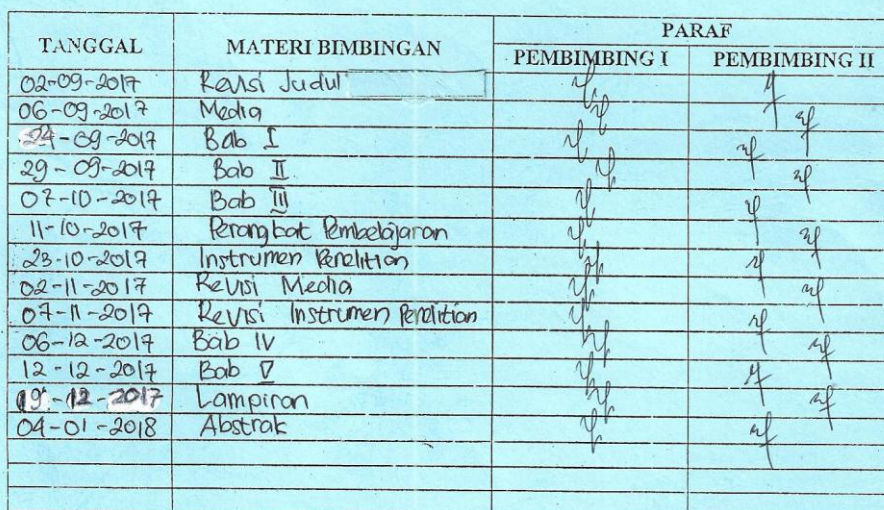 PARAF
TANGGAL MATERI BIMBINGAN PEMBIMBING I PEMBIMBING II
02-09-2017 Revisi Judul
06-09-2017 Media
24-09-2017 Bab I
29-09-2017 Bab II
07-10-2017 Bab III
11-10-2017 Perangkat Pembelajaran
23-10-2017 Instrumen Penelitian
02-11-2017 Revisi Media
07-11-2017 Revisi Instrumen Penelitian
06-12-2017 Bab IV
12-12-2017 Bab V
19-12-2017 Lampiran
04-01-2018 Abstrak